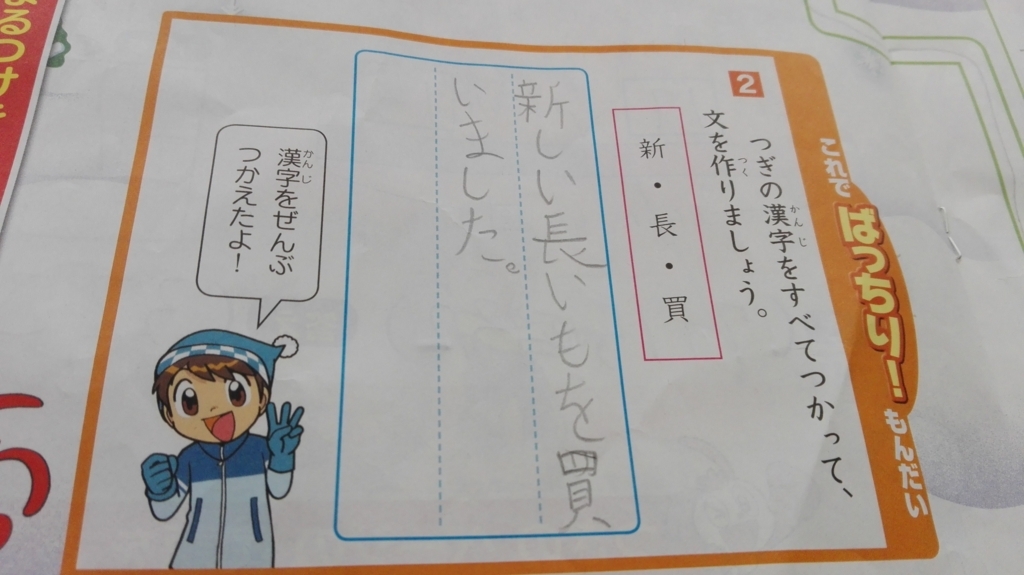 これで ばっちり! もんだい
2
つぎの漢字をすべてつかって、
かんじ
文を作りましょう。
つく
新・長・買
新しい長いもを買、
いました。
漢字をぜんぶ
かんじ
つかえたよ!